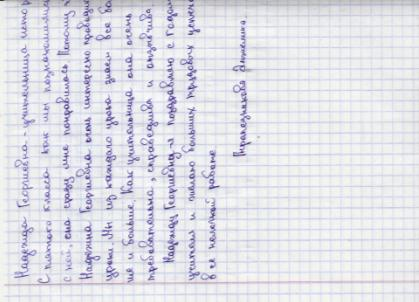 Надежда Георгиевна - учительница истор
С пятого класса как мы познакомились
с ней, она сразу мне понравилась. Потому ч
Надежда Георгиевна очень интересно проводи
уроки. Мы из каждого урока знаем все бо
ше и больше. Как учительница она очень
требовательна, справедлива и отзывчива.
Надежду Георгиевну я поздравляю с Годом
учителя и желаю больших трудовых успехо
в ее нелегкой работе.